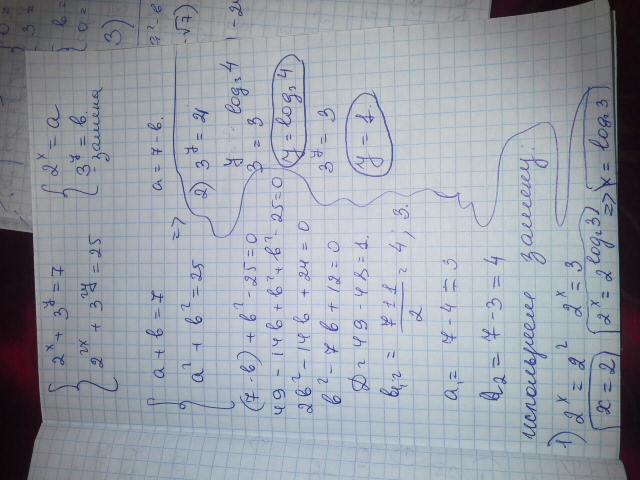 { 2^x + 3^y = 7
2^2x + 3^2y = 25
{ 2^x = a
3^y = b.
замена
{ a + b = 7
a² + b² = 25
=>
a = 7 - b.
(7-b) + b² - 25 = 0
49 - 14b + b² + b² - 25 = 0
2b² - 14b + 24 = 0
b² - 7b + 12 = 0
D = 49 - 48 = 1.
b₁,₂ = (7 ± 1)/2 = 4; 3.
a₁ = 7 - 4 = 3
a₂ = 7 - 3 = 4
используем замену:
1) 2^x = 2² 2^x = 3
x = 2 2^x = 2^log₂3 => x = log₂3
2) 3^y = 4
3^y = 3^log₃4
y = log₃4
3^y = 3
y = 1.